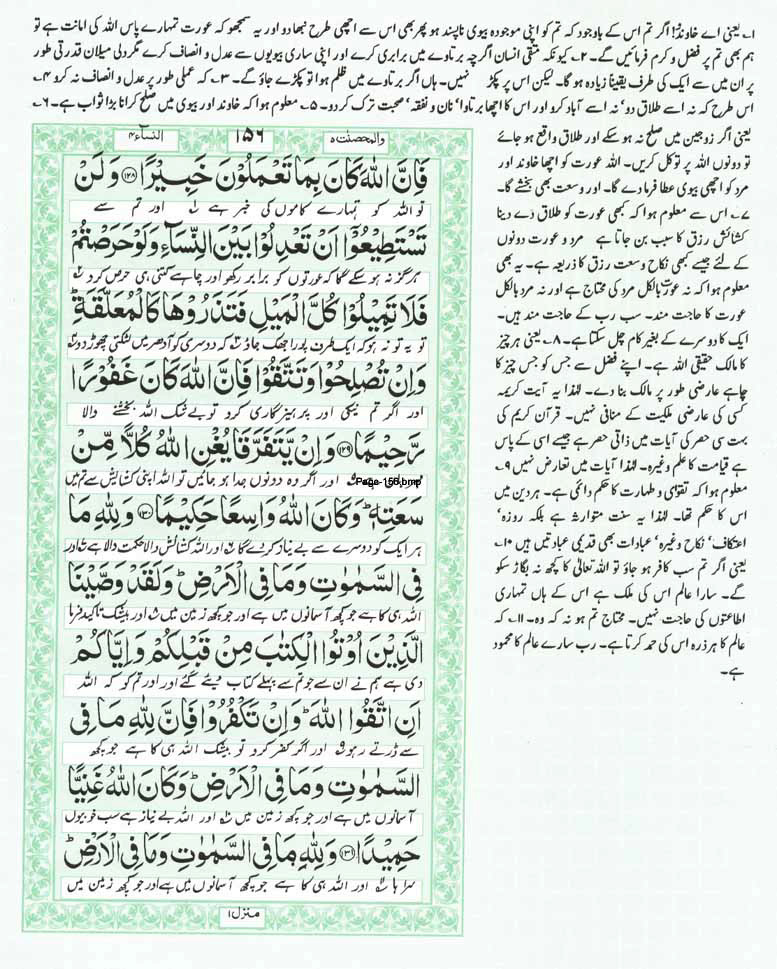 ۱۔ یعنی اے خاوندو! اگر تم اس کے باوجود کہ تم کو اپنی موجودہ بیوی ناپسند ہو پھر بھی اس سے اچھی طرح نبھا دو اور یہ سمجھو کہ عورت تمہارے پاس اللہ کی امانت ہے تو
ہم بھی تم پر فضل و کرم فرمائیں گے۔ ۲۔ کیونکہ متقی انسان اگرچہ برتاوے میں برابری کرے اور اپنی ساری بیویوں سے عدل و انصاف کرے مگر دلی میلان قدرتی طور
پر ان میں سے ایک کی طرف یقیناً زیادہ ہو گا۔ لیکن اس پر پکڑ نہیں۔ ہاں اگر برتاوے میں ظلم ہوا تو پکڑے جاؤ گے۔ ۳۔ کہ عملی طور پر عدل و انصاف نہ کرو ۴۔
اس طرح کہ نہ اسے طلاق دو‘ نہ اسے آباد کرو اور اس کا اچھا برتاوا‘ نان و نفقہ‘ صحبت ترک کر دو۔ ۵۔ معلوم ہوا کہ خاوند اور بیوی میں صلح کرانا بڑا ثواب ہے۔ ۶۔
یعنی اگر زوجین میں صلح نہ ہو سکے اور طلاق واقع ہو جائے
تو دونوں اللہ پر توکل کریں۔ اللہ عورت کو اچھا خاوند اور
مرد کو اچھی بیوی عطا فرما دے گا۔ اور وسعت بھی بخشے گا۔
۷۔ اس سے معلوم ہوا کہ کبھی عورت کو طلاق دے دینا
کشائش رزق کا سبب بن جاتا ہے مرد و عورت دونوں
کے لئے جیسے کبھی نکاح وسعت رزق کا ذریعہ ہے۔ یہ بھی
معلوم ہوا کہ نہ عورت بالکل مرد کی محتاج ہے اور نہ مرد بالکل
عورت کا حاجت مند۔ سب رب کے حاجت مند ہیں۔
ایک کا دوسرے کے بغیر کام چل سکتا ہے۔ ۸۔ یعنی ہر چیز
کا مالک حقیقی اللہ ہے۔ اپنے فضل سے جس کو جس چیز کا
چاہے عارضی طور پر مالک بنا دے۔ لہٰذا یہ آیت کریمہ
کسی کی عارضی ملکیت کے منافی نہیں۔ قرآن کریم کی
بہت سی حصر کی آیات میں ذاتی حصر ہے جیسے اسی کے پاس
ہے قیامت کا علم وغیرہ۔ لہٰذا آیات میں تعارض نہیں ۹۔
معلوم ہوا کہ تقویٰ و طہارت کا حکم دائمی ہے۔ ہر دین میں
اس کا حکم تھا۔ لہٰذا یہ سنت متوارثہ ہے بلکہ روزہ‘
اعتکاف‘ نکاح وغیرہ‘ عبادات بھی قدیمی عبادتیں ہیں ۱۰۔
یعنی اگر تم سب کافر ہو جاؤ تو اللہ تعالیٰ کا کچھ نہ بگاڑ سکو
گے۔ سارا عالم اس کی ملک ہے اس کے ہاں تمہاری
اطاعتوں کی حاجت نہیں۔ محتاج تم ہو نہ کہ وہ۔ ۱۱۔ کہ
عالم کا ہر ذرہ اس کی حمد کرتا ہے۔ رب سارے عالم کا محمود
ہے۔
والمحصنٰت ۵ ۱۵۶ النسآء ۴
فَاِنَّ اللّٰهَ كَانَ بِمَا تَعْمَلُوْنَ خَبِيْرًا ﴿۱۲۸﴾ وَلَنْ
تو اللہ کو تمہارے کاموں کی خبر ہے ۱؎ اور تم سے
تَسْتَطِيْعُوْٓا اَنْ تَعْدِلُوْا بَيْنَ النِّسَآءِ وَلَوْ حَرَصْتُمْ
ہرگز نہ ہو سکے گا کہ عورتوں کو برابر رکھو اور چاہے کتنی ہی حرص کرو ۲؎
فَلَا تَمِيْلُوْا كُلَّ الْمَيْلِ فَتَذَرُوْهَا كَالْمُعَلَّقَةِ ؕ
تو یہ تو نہ ہو کہ ایک طرف پورا جھک جاؤ ۳؎ کہ دوسری کو ادھر میں لٹکتی چھوڑ دو ۴؎
وَاِنْ تُصْلِحُوْا وَتَتَّقُوْا فَاِنَّ اللّٰهَ كَانَ غَفُوْرًا
اور اگر تم نیکی اور پرہیزگاری کرو تو بے شک اللہ بخشنے والا
رَّحِيْمًا ﴿۱۲۹﴾ وَاِنْ يَّتَفَرَّقَا يُغْنِ اللّٰهُ كُلًّا مِّنْ
Page-156.bmp ۵؎ اور اگر وہ دونوں جدا ہو جائیں تو اللہ اپنی کشائش سے تم میں
سَعَتِهٖ ؕ وَكَانَ اللّٰهُ وَاسِعًا حَكِيْمًا ﴿۱۳۰﴾ وَلِلّٰهِ مَا
ہر ایک کو دوسرے سے بے نیاز کر دے گا ۶؎ اور اللہ کشائش والا حکمت والا ہے ۷؎ اور
فِى السَّمٰوٰتِ وَمَا فِى الْاَرْضِ ؕ وَلَقَدْ وَصَّيْنَا
اللہ ہی کا ہے جو کچھ آسمانوں میں ہے اور جو کچھ زمین میں ۸؎ اور بیشک تاکید فرما
الَّذِيْنَ اُوْتُوا الْكِتٰبَ مِنْ قَبْلِكُمْ وَاِيَّاكُمْ
دی ہے ہم نے ان سے جو تم سے پہلے کتاب دیئے گئے اور اور تم کو کہ اللہ
اَنِ اتَّقُوا اللّٰهَ ؕ وَاِنْ تَكْفُرُوْا فَاِنَّ لِلّٰهِ مَا فِى
سے ڈرتے رہو ۹؎ اور اگر کفر کرو تو بیشک اللہ ہی کا ہے جو کچھ
السَّمٰوٰتِ وَمَا فِى الْاَرْضِ ؕ وَكَانَ اللّٰهُ غَنِيًّا
آسمانوں میں ہے اور جو کچھ زمین میں ۱۰؎ اور اللہ بے نیاز ہے سب خوبیوں
حَمِيْدًا ﴿۱۳۱﴾ وَلِلّٰهِ مَا فِى السَّمٰوٰتِ وَمَا فِى الْاَرْضِ ؕ
سراہا ۱۱؎ اور اللہ ہی کا ہے جو کچھ آسمانوں میں ہے اور جو کچھ زمین میں
منزل ۱